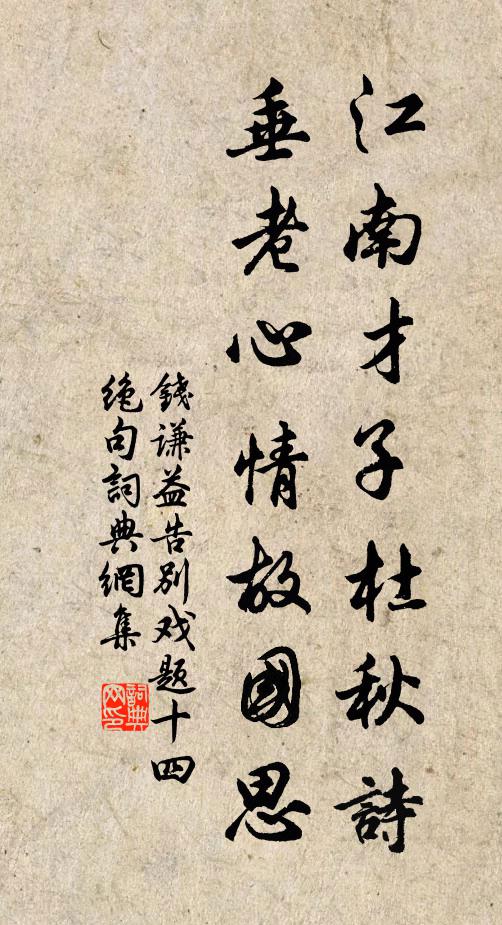 江南才子杜秋詩
垂老心情故國思
錢谦益告別戏题十四
绝句詞典網集
詞典
网印